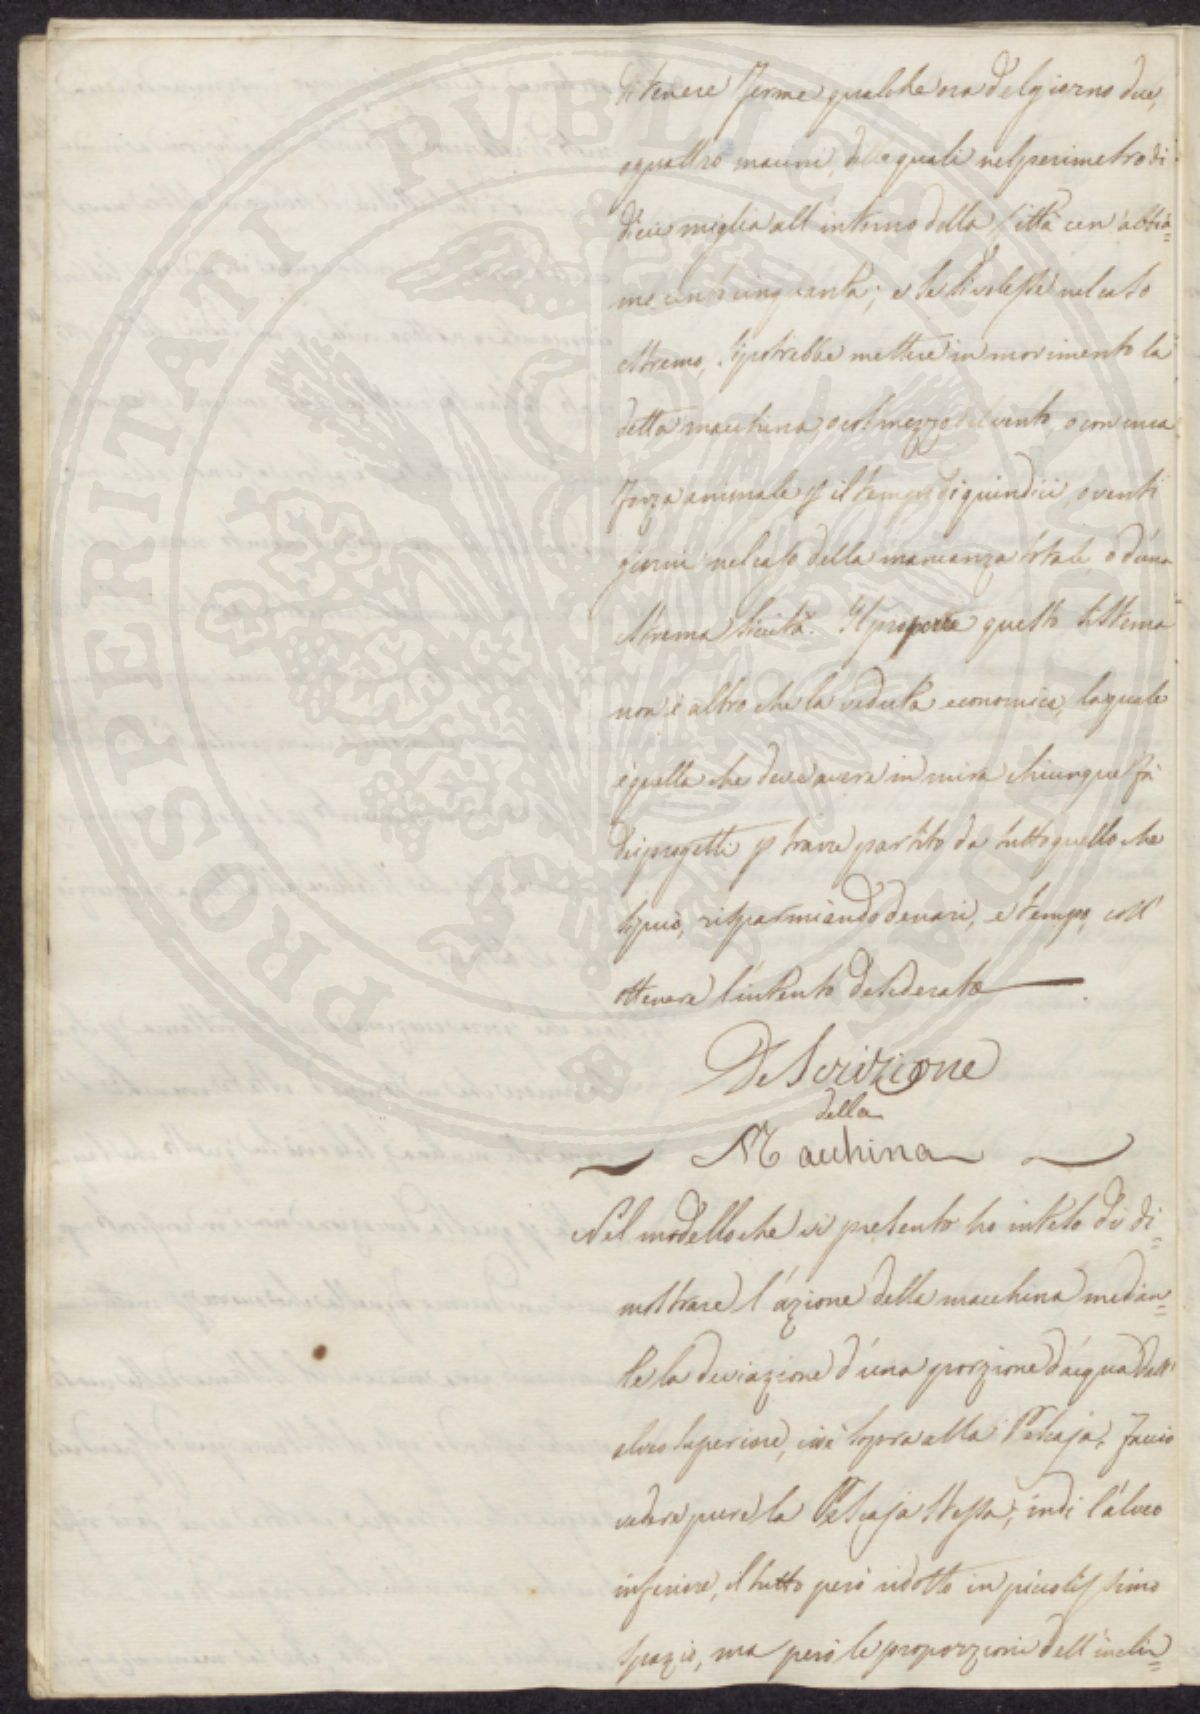 di tenere ferme qualche ora del giorno due,
o quattro macine, delle quali nel perimetro di
dieci miglia all'intorno della Città cen'abbia=
mo cento cinquanta; e se si volesse nel caso
estremo, si potrebbe mettere in movimento la
detta macchina, o col mezzo del vento, o con una
forza animale p il tempo di quindici, o venti
giorni nel caso della mancanza totale, o d'una
estrema siccità. Il proporre questo sistema
non è altro che la veduta economica, la quale
è quella che deve avere in mira chiunque fà
dei progetti p trarre partito da tutto quello che
si può, risparmiando denari, e tempo, coll'
ottenere l'intento desiderato
Descrizione
della
Macchina
Nel modello che vi presento ho inteso di di=
mostrare l'azione della macchina median=
te la deviazione d'una porzione d'acqua dall'
alveo superiore, cioè sopra alla Pescaja, faccio
vedere pure la Pescaja stessa; indi l'alveo
inferiore, il tutto però ridotto in piccolissimo
spazio, ma però le proporzioni dell'inclin=
PROSPERITATI PVBLICAE